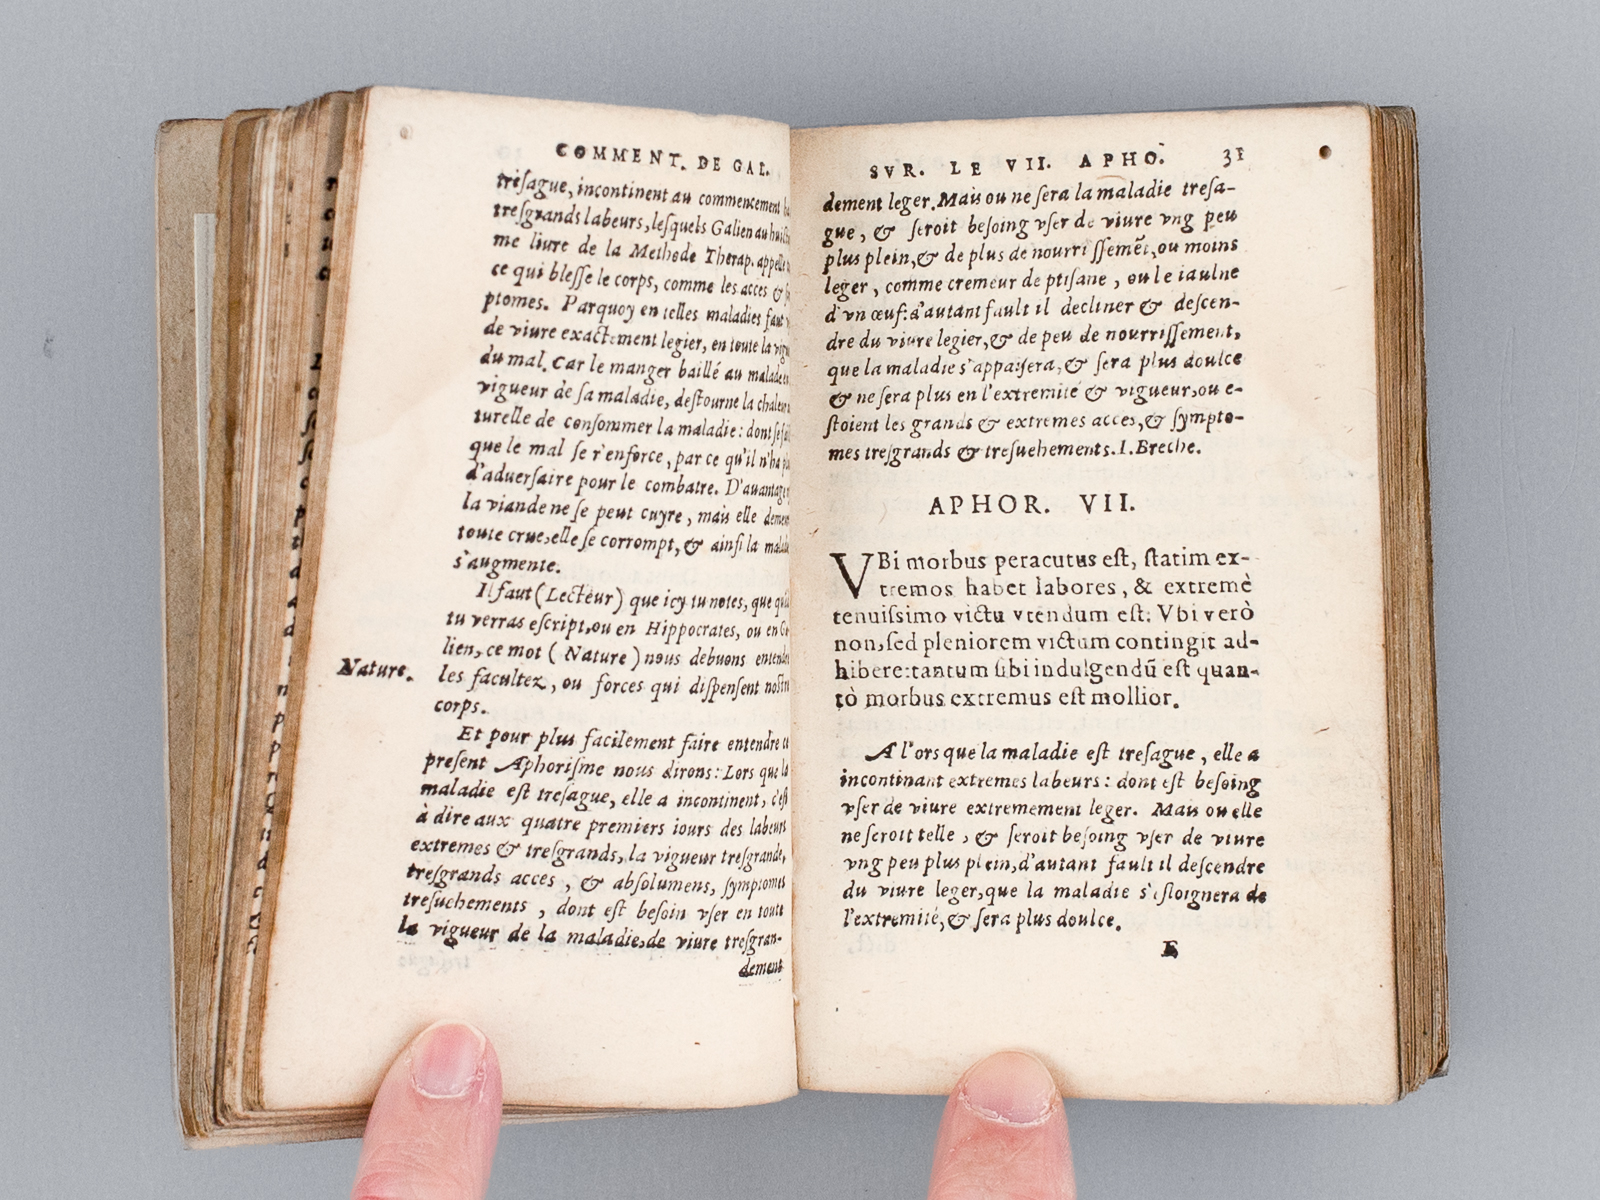 COMMENT. DE GAL.
tresague, incontinent au commencement
tresgrands labeurs, lesquels Galien au
me liure de la Methode Therap. appelle
ce qui blesse le corps, comme les acces &
ptomes. Parquoy en telles maladies faut
de viure exactement legier, en toute la
du mal. Car le manger baillé au malade
vigueur de sa maladie, destourne la
turelle de consommer la maladie: dont
que le mal se r'enforce, par ce qu'il n'ha
d'aduersaire pour le combatre. D'auantage
la viande ne se peut cuyre, mais elle
toute crue, elle se corrompt, & ainsi la
s'augmente.
Il faut (Lecteur) que icy tu notes, que
tu verras escript, ou en Hippocrates, ou en
lien, ce mot (Nature) nous debuons
Nature.
les facultez, ou forces qui dispensent nostre
corps.
Et pour plus facilement faire entendre
present Aphorisme nous dirons: Lors que la
maladie est tresague, elle a incontinent, c'est
à dire aux quatre premiers iours des labeurs
extremes & tresgrands, la vigueur tresgrande,
tresgrands acces, & absolumens, symptomes
tresuehements, dont est besoin vser en toute
la vigueur de la maladie, de viure tresgran-
dement
SVR. LE VII. APHO. 31
dement leger. Mais ou ne sera la maladie tresa-
gue, & seroit besoing vser de viure vng peu
plus plein, & de plus de nourrissemēt, ou moins
leger, comme cremeur de ptisane, ou le iaulne
d'vn œuf: d'autant fault il decliner & descen-
dre du viure legier, & de peu de nourrissement,
que la maladie s'appaisera, & sera plus doulce
& ne sera plus en l'extremité & vigueur, ou e-
stoient les grands & extremes acces, & sympto-
mes tresgrands & tresuehements. I. Breche.
APHOR. VII.
VBi morbus peracutus est, statim ex-
tremos habet labores, & extremè
tenuissimo victu vtendum est: Vbi verò
non, sed pleniorem victum contingit ad-
hibere: tantum sibi indulgendū est quan-
tò morbus extremus est mollior.
A l'ors que la maladie est tresague, elle a
incontinant extremes labeurs: dont est besoing
vser de viure extremement leger. Mais ou elle
ne seroit telle, & seroit besoing vser de viure
vng peu plus plein, d'autant fault il descendre
du viure leger, que la maladie s'esloignera de
l'extremité, & sera plus doulce.
E